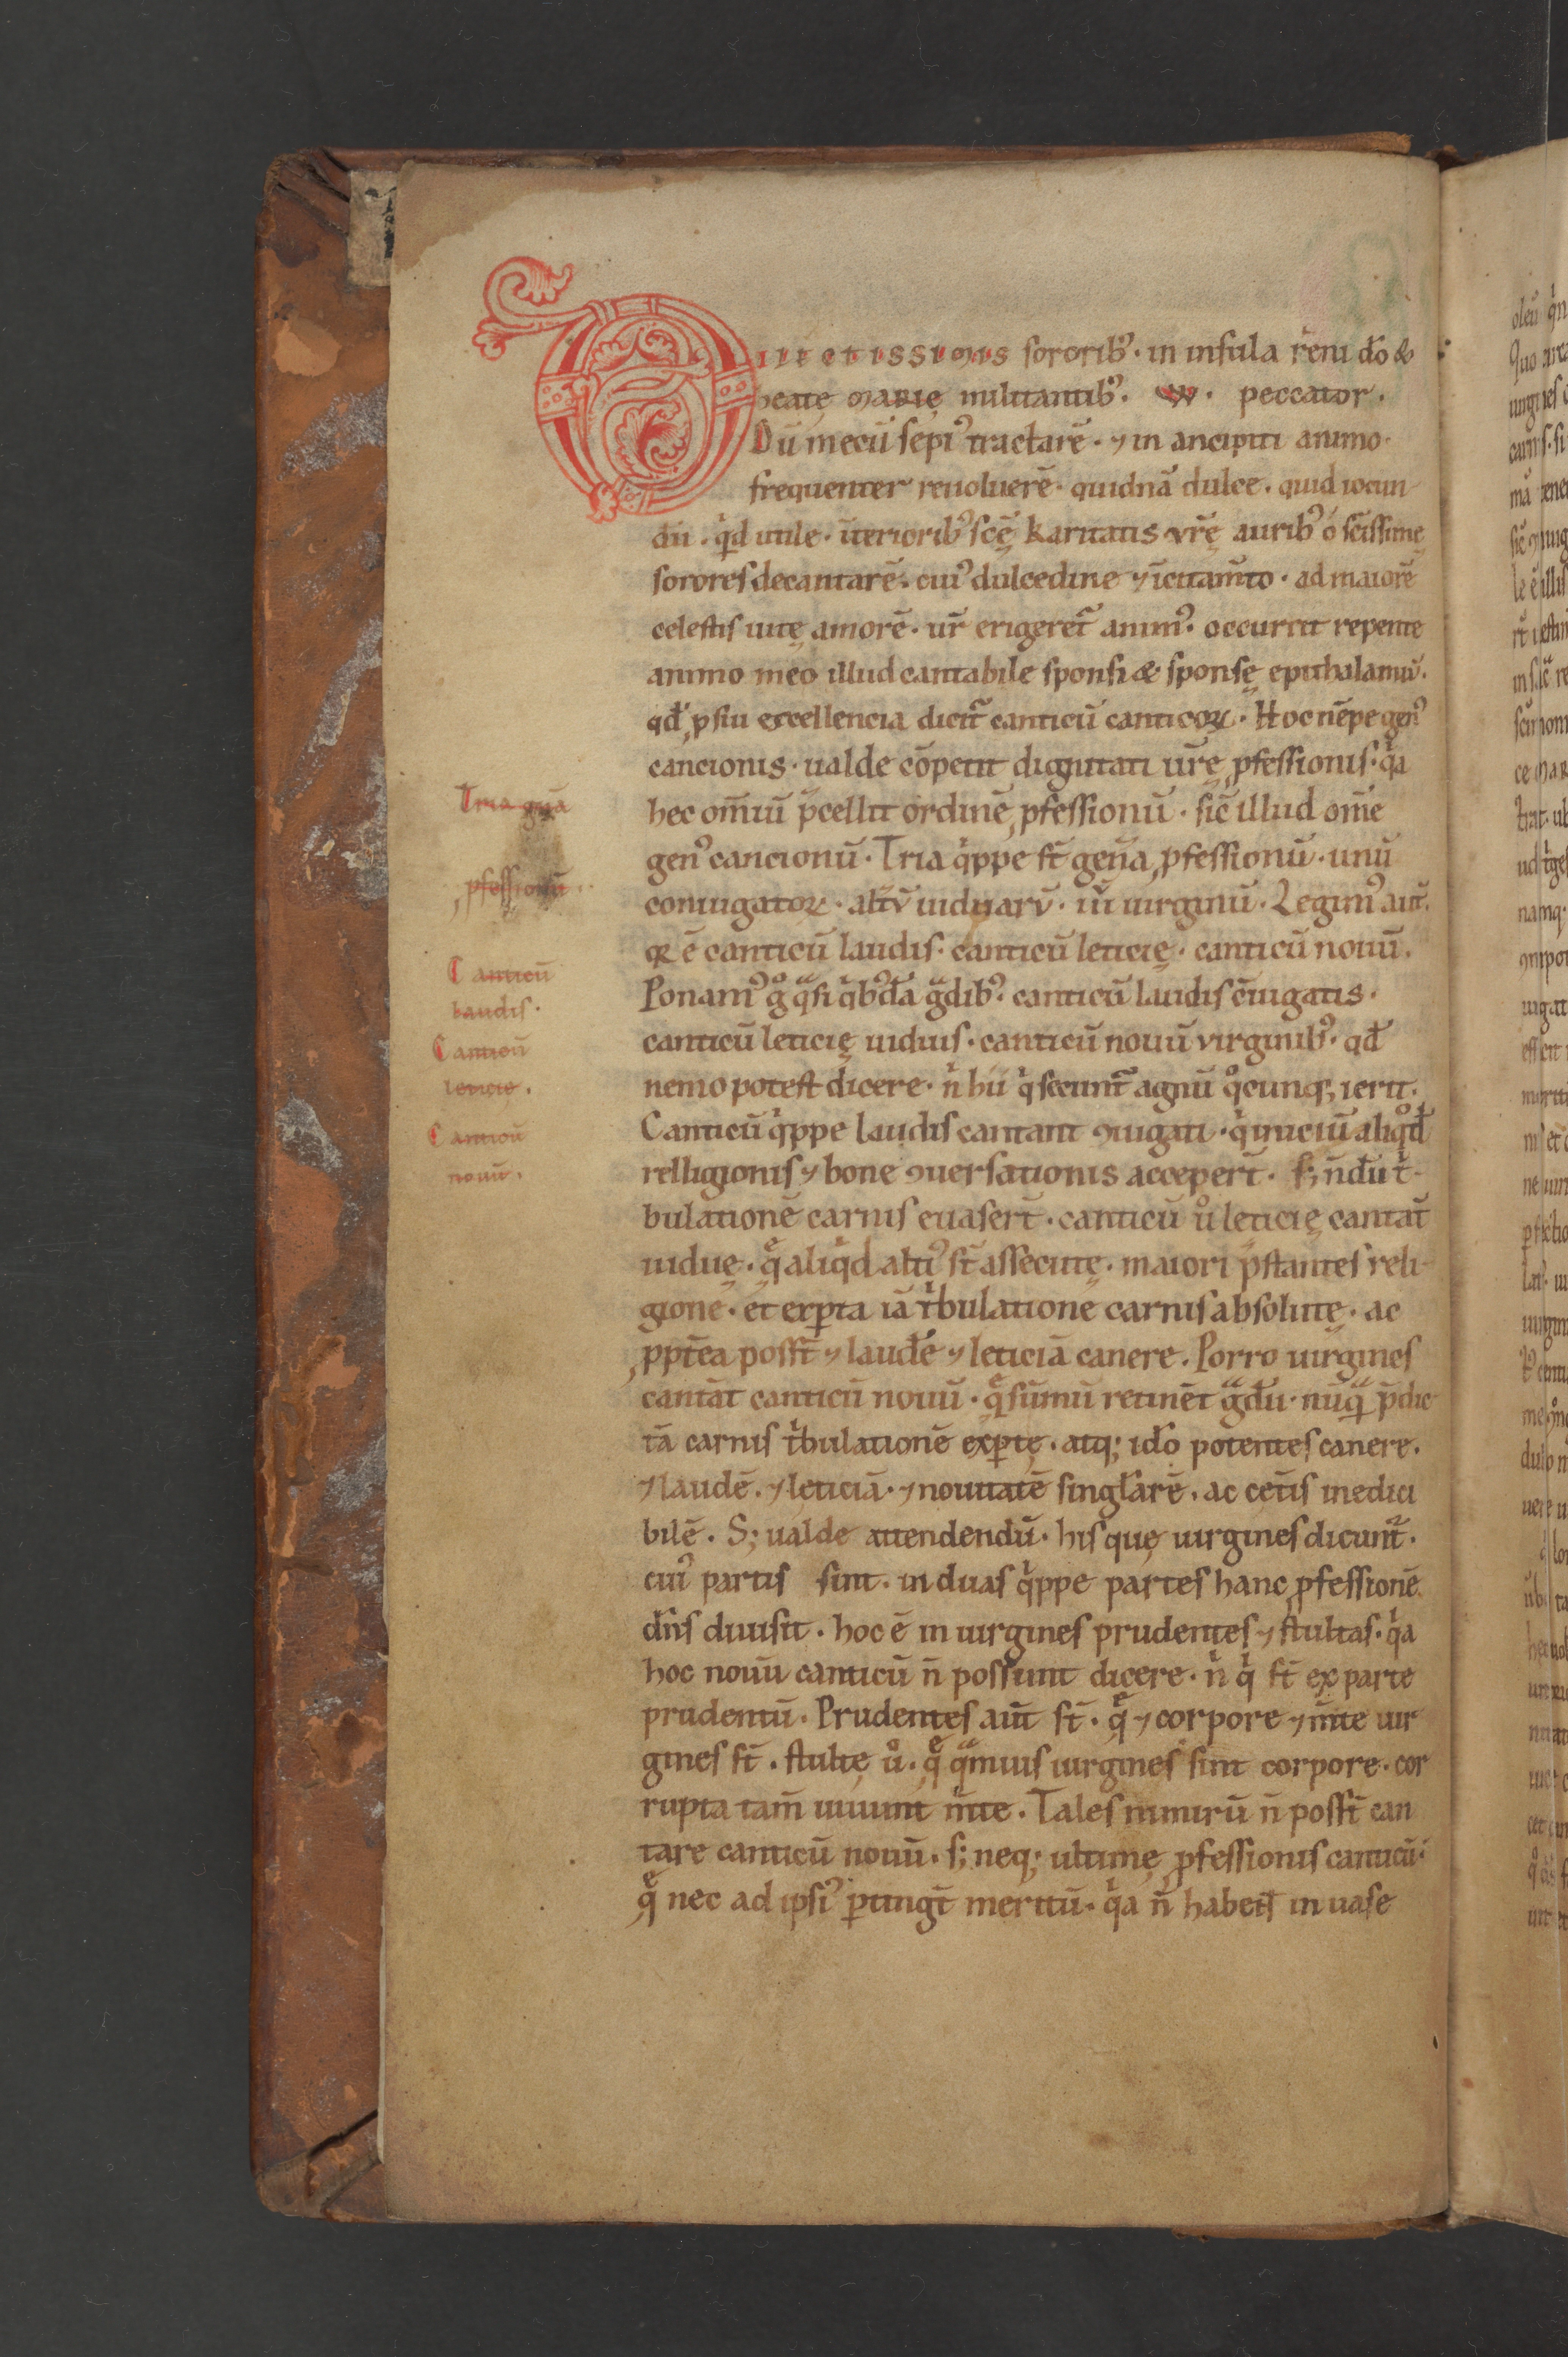 Dilectissimis sororib᷒ · in insula reni dō &
beatę marię militantib᷒ · W · peccator ·
Dū mecū sepi᷒ tractarē · ⁊ in ancipiti animo ·
frequenter reuoluerē · quidnā dulce · quid iocun
dū · qͥd utile · īterioribꝰ scę̄ karitatis vr̄ę auribꝰ o sc̄issimę
sorores decantarē · cuiꝰ dulcedine ⁊ īcitam̄to · ad maiorē
celestis uitę amorē · ur̄ erigeret᷑ animꝰ · occurrit repente
animo meo illud cantabile sponsi & sponsę epithalamiū ·
qđ ꝓ sui excellencia dicit᷑ canticū canticoꝝ · Hoc nēpe genꝰ
cancionis · ualde cōpetit dignitati ur̄ę ꝓfessionis · qͥa
hec om̄iū p̄cellit ordinē ꝓfessionū · sic̄ illud om̄e
genꝰ cancionū · Tria qͥppe st̄ gen̄a ꝓfessionū · unū
coniugatoꝝ · alt̄ū uiduarū · iii᷑ uirginū · Legimꝰ aut̄ ·
qꝛ ē canticū laudis · canticū leticię · canticū nouū ·
Ponamꝰ gͦ qͣsi qͥbꝰdā gͣdibꝰ · canticū laudis c̄iugatis ·
canticū leticię uiduis · canticū nouū virginibꝰ · qđ
nemo potest dicere · nͥ hii qͥ secunt᷑ agnū qͦcunqꝫ ierit ·
Canticū qͥppe laudis cantant ꝯiugati · qͥ iniciū aliqͦd
relligionis ⁊ bone ꝯuersationis acceper̄t · sꝫ n̄dū tͥ
bulationē carnis euaser̄t · canticū uͦ leticię cantāt
uiduę · qͤ aliqͥd altiꝰ st̄ assecutę · maiori p̄stantes reli
gione · et exꝑta iā tͥbulatione carnis absolutę · ac
ꝓpt̄ea posst̄ ⁊ laudē ⁊ leticiā canere · Porro uirgines
cantāt canticū nouū · qͤ sūmū retinēt gͣdū · nūqͣ p̄dic
tā carnis tͥbulationē exꝑtę · atqꝫ idō potentes canere ·
⁊ laudē · ⁊ leticiā · ⁊ nouitatē singl̄arē · ac cet̄is inedici
bilē · Sꝫ ualde attendendū · his quę uirgines dicunt᷑ ·
cuiꝰ partis sint · in duas qͥppe partes hanc ꝓfessionē
dn̄s diuisit · hoc ē in uirgines prudentes ⁊ stultas · qͥa
hoc nouū canticū n̄ possunt dicere · nͥ qͥ st̄ ex parte
prudentū · Prudentes aut̄ st̄ · qͤ ⁊ corpore ⁊ m̄te uir
gines st̄ · stultę uͦ · qͤ qͣmuis uirgines sint corpore · cor
rupta tam̄ uiuunt m̄te · Tales nimirū n̄ posst̄ can
tare canticū nouū · sꝫ neqꝫ ultimę ꝓfessionis canticū ·
qͤ nec ad ipsiꝰ ꝑtingt̄ meritū · qͥa n̄ habent in uase
Tria gn̄a
ꝓfessionū ·
Canticū
laudis ·
Canticū
leticie ·
Canticū
nouū ·